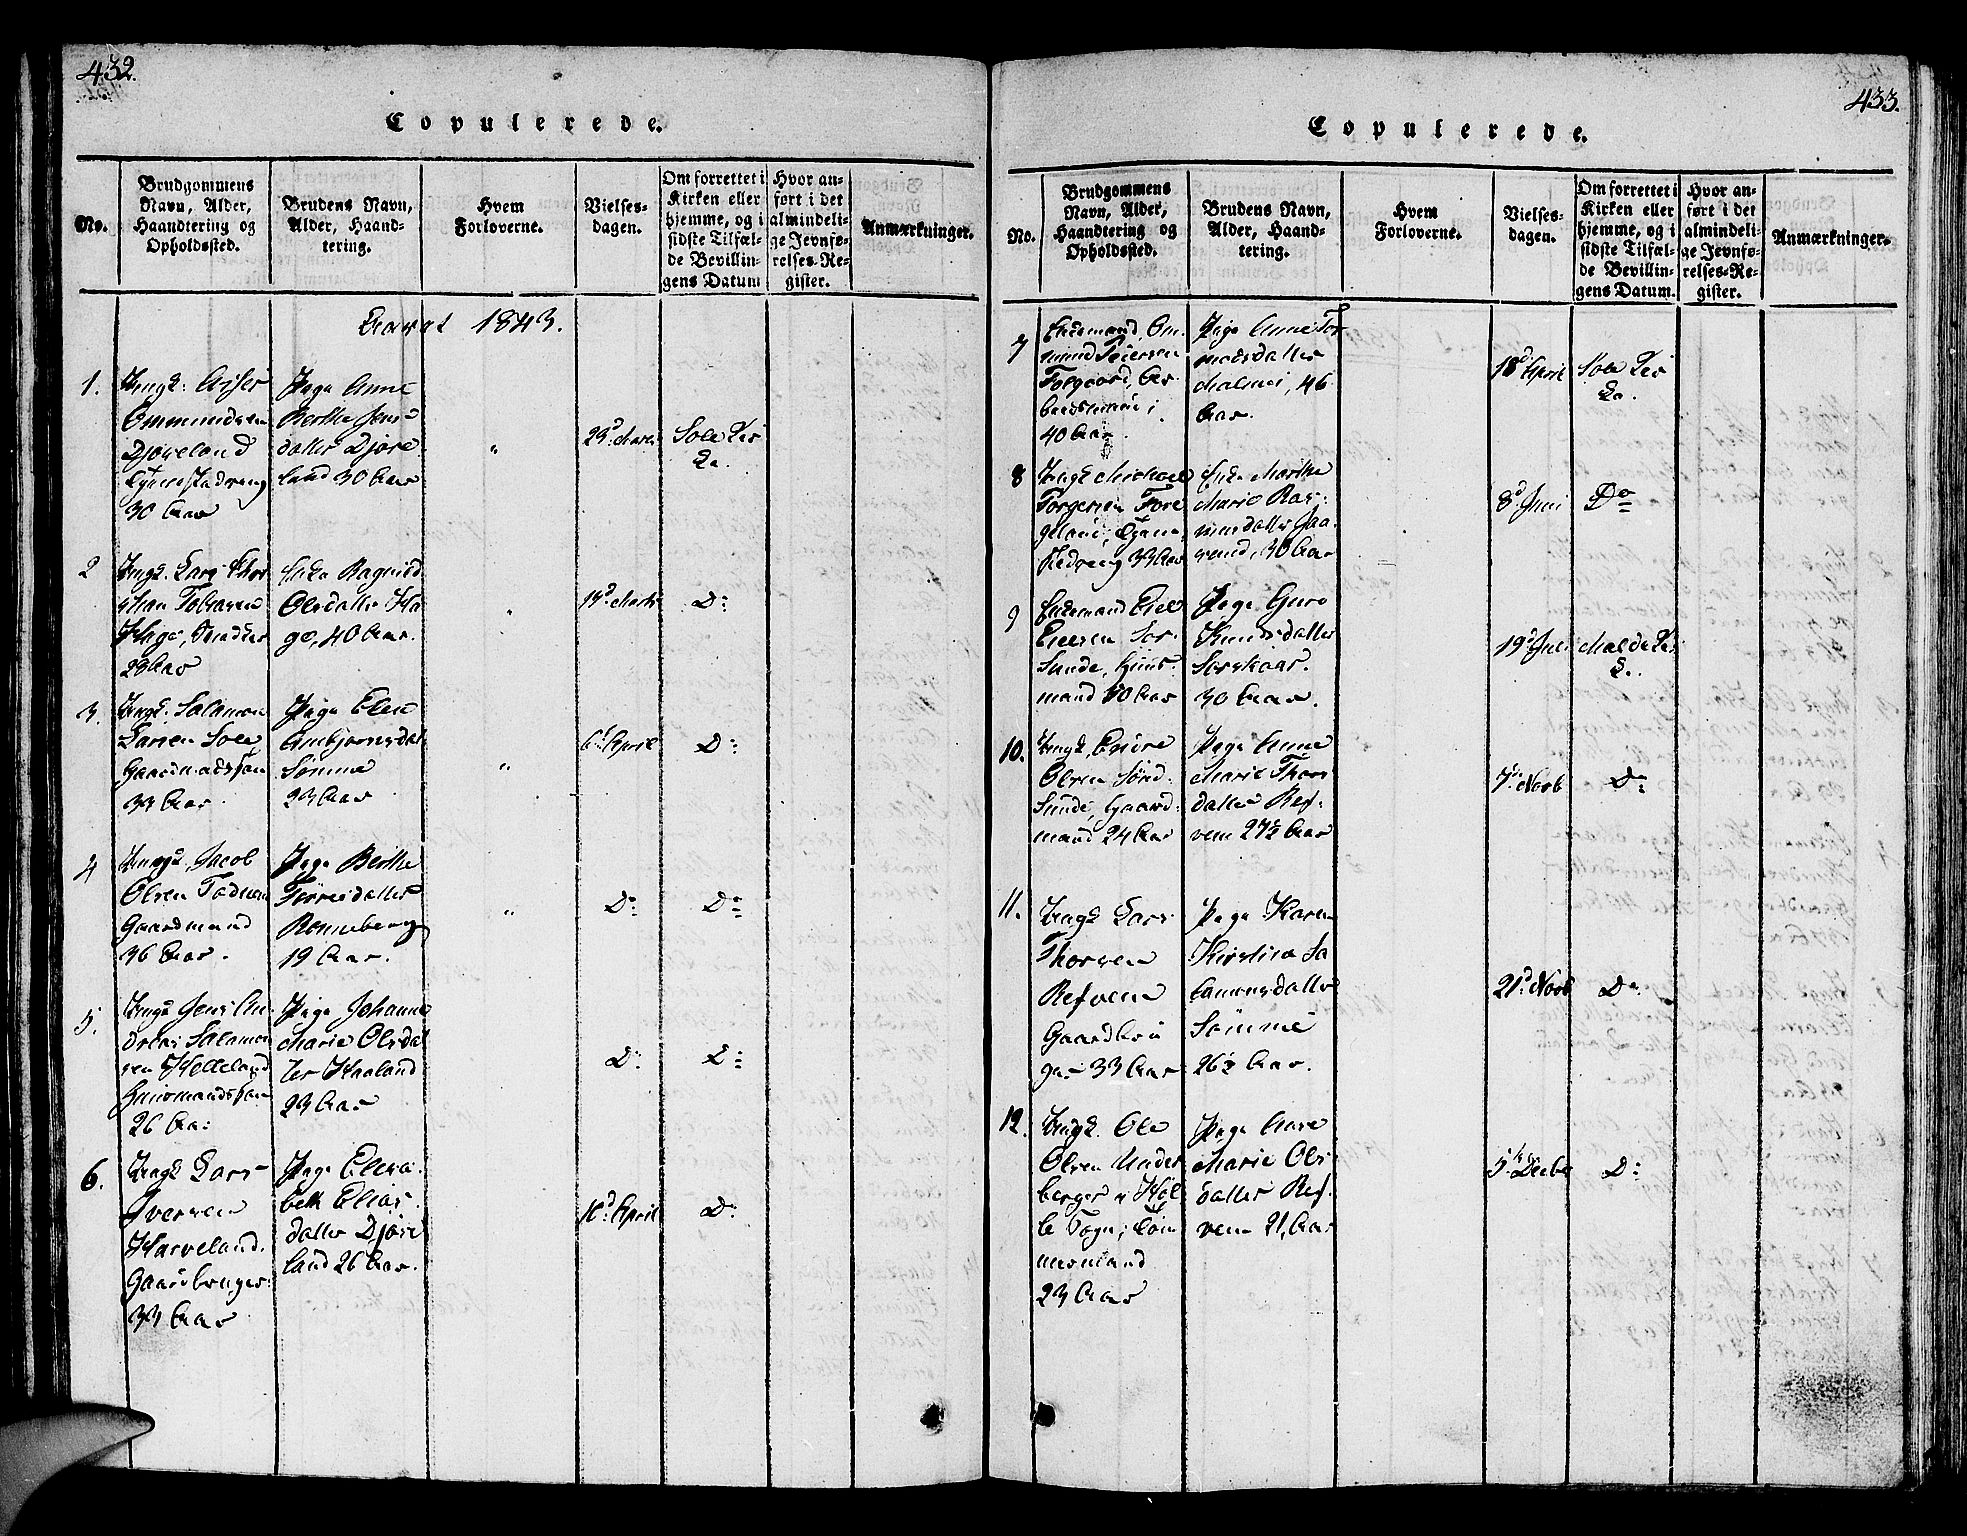 432.
Copulerede.
No.
Brudgommens
Navn, Alder,
Haandtering og
Opholdssted.
Brudens Navn,
Alder, Haand-
tering.
Hvem
Forloverne.
Vielses-
dagen.
Om forrettet i
Kirken eller
hjemme, og i
sidste Tilfæl-
de Bevillin-
gens Datum
Hvor an-
ført i det
almindeli-
ge Jevnfø-
relses-Re-
gister.
Anmærkninger.
Aaret 1843.
1.
Ungk:
Ommundsen
Djøseland
30 Aar
Pige Anne
Berthe Jens-
datter Djøse
land 30 Aar
"
Sole Kir
ke.
2
Ungk. Lars Chri
sthan Tobiasen
Hage,
23 Aar
Enke Ragnild
Olsdatter Ha
ge, 40 Aar.
"
D:
3.
Ungk: Salamon
Larsen Sole
Gaardmandssøn
33 Aar
Pige Elen
Asbjørnsdat
Sømme
23 Aar
"
6t April
D:
4
Ungk. Jacob
Olsen Tadnem
Gaardmand
36 Aar.
Pige Berthe
Torresdatter
Ronneberg
19 Aar.
"
D:
D:
5.
Ungk Jens An
dreas Salamon
sen Helleland
Huusmandssøn
26 Aar
Pige Johanne
Marie Olsdat
ter Haaland
23 Aar
D:
D:
6.
Ungk Lars
Iversen
Harveland.
Gaardbruger
33 Aar
Pige Elisa
beth Elias
datter Djøse
land 26 Aar.
April
D:
433.
Copulerede.
No.
Brudgommens
Navn, Alder,
Haandtering og
Opholdssted.
Brudens Navn,
Alder, Haand-
tering.
Hvem
Forloverne.
Vielses-
dagen.
Om forrettet i
Kirken eller
hjemme, og i
sidste Tilfæl-
de Bevillin-
gens Datum.
Hvor an-
ført i det
almindeli-
ge Jevnfø-
relses-Re-
gister.
Anmærkninger.
7
Enkemand, Om-
mund Peersen
Tolgaard, Ar-
beidsmand;
40 Aar.
Pige Anne Tor
madsdatter
Malmei, 46
Aar.
18d April
Sole Kir
ke.
8
Ungk Michael
Torgersen Fore
33 Aar
Enke Marthe
Marie Ras-
musdatter Jaa-
sund, 30 Aar
8d Juni
Do
9
Enkemand
Sør-
Sunde, Huus
mand 50 Aar
Pige Guro
Knudsdatter
30 Aar.
19d Juli
Malde Kir
ke.
10.
Ungk,
Olsen Sønd
Sunde, Gaard-
mand 24 Aar
Pige Anne
Marie Thors
datter Ref-
vem 27½ Aar
7d Novb
D:
11.
Ungk Lars
Thorsen
Refvem
Gaardbru
ger 33 Aar
Pige Karen
Kirstina Sa
lamonsdatter
Sømme
26½ Aar.
21d Novb
D:
12.
Ungk. Ole
Olsen Under
berget i Høl
le Sogn; Tøm
mermand
23 Aar
Pige Aase
Marie Ols
datter Ref-
vem 21, Aar
5te Decbr
D: